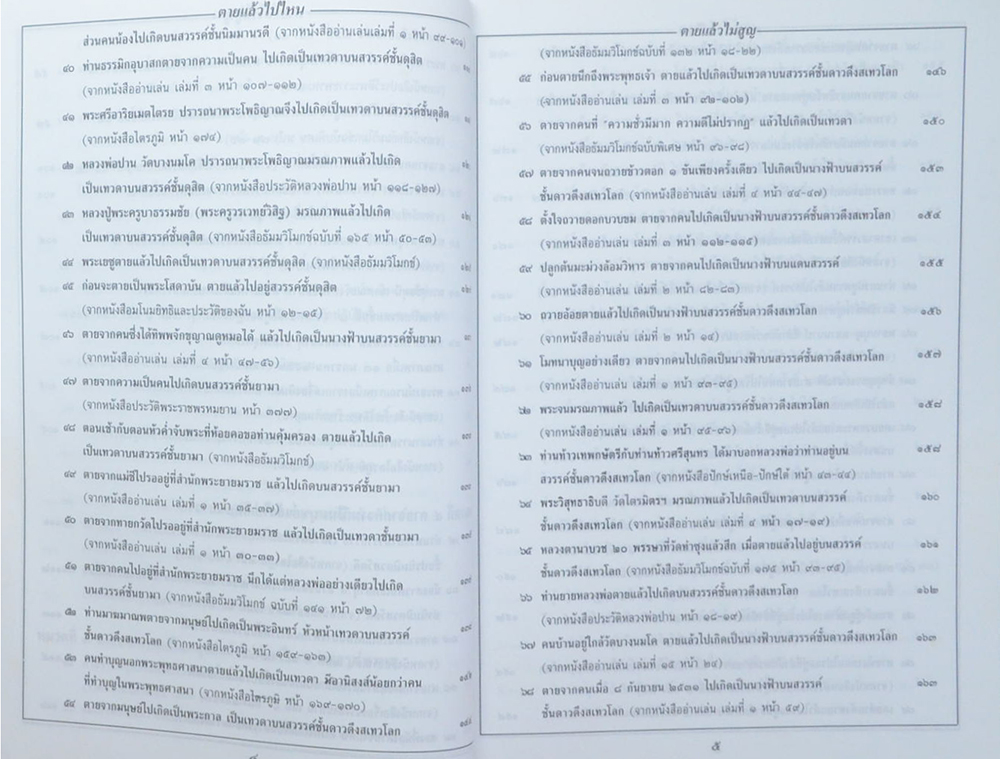 ตายแล้วไปไหน
ส่วนคนน้องไปเกิดบนสวรรค์ชั้นนิมมานรดี (จากหนังสืออ่านเล่นเล่มที่ ๑ หน้า ๙๙-๑๐๑)
๔๐ ท่านธรรมิกอุบาสกตายจากความเป็นคน ไปเกิดเป็นเทวดาบนสวรรค์ชั้นดุสิต
(จากหนังสืออ่านเล่น เล่มที่ ๓ หน้า ๑๐๗-๑๑๒)
๔๑ พระศรีอาริยเมตไตรย ปรารถนาพระโพธิญาณจึงไปเกิดเป็นเทวดาบนสวรรค์ชั้นดุสิต
(จากหนังสือไตรภูมิ หน้า ๑๗๔)
๔๒ หลวงพ่อปาน วัดบางนมโค ปรารถนาพระโพธิญาณมรณภาพแล้วไปเกิด
เป็นเทวดาบนสวรรค์ชั้นดุสิต (จากหนังสือประวัติหลวงพ่อปาน หน้า ๑๑๘-๑๒๗)
๔๓ หลวงปู่พระครูบาธรรมชัย (พระครูวรเวทย์วิสิฐ) มรณภาพแล้วไปเกิด
เป็นเทวดาบนสวรรค์ชั้นดุสิต (จากหนังสือธัมมวิโมกข์ฉบับที่ ๑๖๕ หน้า ๕๐-๕๓)
๔๔ พระเยซูตายแล้วไปเกิดเป็นเทวดาบนสวรรค์ชั้นดุสิต (จากหนังสือธัมมวิโมกข์)
๔๕ ก่อนจะตายเป็นพระโสดาบัน ตายแล้วไปอยู่สวรรค์ชั้นดุสิต
(จากหนังสือมโนมยิทธิและประวัติของฉัน หน้า ๑๒-๑๕)
๔๖ ตายจากคนซึ่งได้ทิพพจักขุญาณดูหมอได้ แล้วไปเกิดเป็นนางฟ้าบนสวรรค์ชั้นยามา
(จากหนังสืออ่านเล่น เล่มที่ ๔ หน้า ๔๗-๕๖)
๔๗ ตายจากความเป็นคนไปเกิดบนสวรรค์ชั้นยามา
(จากหนังสือประวัติพระราชพรหมยาน หน้า ๓๗๗)
๔๘ ตอนเช้ากับตอนหัวค่ำจับพระที่ห้อยคอขอท่านคุ้มครอง ตายแล้วไปเกิด
เป็นเทวดาบนสวรรค์ชั้นยามา (จากหนังสือธัมมวิโมกข์)
๔๙ ตายจากแม่ชีไปรออยู่ที่สำนักพระยายมราช แล้วไปเกิดบนสวรรค์ชั้นยามา
(จากหนังสืออ่านเล่น เล่มที่ ๑ หน้า ๓๕-๓๗)
๕๐ ตายจากทายกวัดไปรออยู่ที่สำนักพระยายมราช แล้วไปเกิดเป็นเทวดาชั้นยามา
(จากหนังสืออ่านเล่น เล่มที่ ๑ หน้า ๓๐-๓๓)
๕๑ ตายจากคนไปอยู่ที่สำนักพระยายมราช นึกได้แต่หลวงพ่ออย่างเดียวไปเกิด
บนสวรรค์ชั้นยามา (จากหนังสือธัมมวิโมกข์ ฉบับที่ ๑๔๑ หน้า ๗๒)
๕๒ ท่านมาฆมาณพตายจากมนุษย์ไปเกิดเป็นพระอินทร์ หัวหน้าเทวดาบนสวรรค์
ชั้นดาวดึงสเทวโลก (จากหนังสือไตรภูมิ หน้า ๑๕๙-๑๖๓)
๕๓ คนทำบุญนอกพระพุทธศาสนาตายแล้วไปเกิดเป็นเทวดา มีอานิสงส์น้อยกว่าคน
ที่ทำบุญในพระพุทธศาสนา (จากหนังสือไตรภูมิ หน้า ๑๖๙-๑๗๐)
๕๔ ตายจากมนุษย์ไปเกิดเป็นพระกาล เป็นเทวดาบนสวรรค์ชั้นดาวดึงสเทวโลก
ตายแล้วไม่สูญ
(จากหนังสือธัมมวิโมกข์ฉบับที่ ๑๓๒ หน้า ๑๘-๒๒)
๕๕ ก่อนตายนึกถึงพระพุทธเจ้า ตายแล้วไปเกิดเป็นเทวดาบนสวรรค์ชั้นดาวดึงสเทวโลก ๑๔๖
(จากหนังสืออ่านเล่น เล่มที่ ๓ หน้า ๙๒-๑๐๒)
๕๖ ตายจากคนที่ "ความชั่วมีมาก ความดีไม่ปรากฏ" แล้วไปเกิดเป็นเทวดา ๑๕๐
(จากหนังสือธัมมวิโมกข์ฉบับพิเศษ หน้า ๙๖-๙๘)
๕๗ ตายจากคนจนถวายข้าวตอก ๑ ขันเพียงครั้งเดียว ไปเกิดเป็นนางฟ้าบนสวรรค์ ๑๕๓
ชั้นดาวดึงสเทวโลก (จากหนังสืออ่านเล่น เล่มที่ ๔ หน้า ๔๔-๔๗)
๕๘ ตั้งใจถวายดอกบวบขม ตายจากคนไปเกิดเป็นนางฟ้าบนสวรรค์ชั้นดาวดึงสเทวโลก ๑๕๔
(จากหนังสืออ่านเล่น เล่มที่ ๓ หน้า ๑๑๒-๑๑๕)
๕๙ ปลูกต้นมะม่วงล้อมวิหาร ตายจากคนไปเกิดเป็นนางฟ้าบนแดนสวรรค์ ๑๕๕
(จากหนังสืออ่านเล่น เล่มที่ ๒ หน้า ๘๒-๘๓)
๖๐ ถวายอ้อยตายแล้วไปเกิดเป็นนางฟ้าบนสวรรค์ชั้นดาวดึงสเทวโลก ๑๕๖
(จากหนังสืออ่านเล่น เล่มที่ ๒ หน้า ๑๔)
๖๑ โมทนาบุญอย่างเดียว ตายจากคนไปเกิดเป็นนางฟ้าบนสวรรค์ชั้นดาวดึงสเทวโลก ๑๕๗
(จากหนังสืออ่านเล่น เล่มที่ ๑ หน้า ๙๓-๙๕)
๖๒ พระจนมรณภาพแล้ว ไปเกิดเป็นเทวดาบนสวรรค์ชั้นดาวดึงสเทวโลก ๑๕๘
(จากหนังสืออ่านเล่น เล่มที่ ๑ หน้า ๙๕-๙๖)
๖๓ ท่านท้าวเทพกษัตรีกับท่านท้าวศรีสุนทร ได้มาบอกหลวงพ่อว่าท่านอยู่บน ๑๕๘
สวรรค์ชั้นดาวดึงสเทวโลก (จากหนังสือปักษ์เหนือ-ปักษ์ใต้ หน้า ๔๓-๔๔)
๖๔ พระวิสุทธาธิบดี วัดไตรมิตรฯ มรณภาพแล้วไปเกิดเป็นเทวดาบนสวรรค์ ๑๖๐
ชั้นดาวดึงสเทวโลก (จากหนังสืออ่านเล่น เล่มที่ ๔ หน้า ๑๗-๑๙)
๖๕ หลวงตามาบวช ๒๐ พรรษาที่วัดท่าซุงแล้วสึก เมื่อตายแล้วไปอยู่บนสวรรค์ ๑๖๑
ชั้นดาวดึงสเทวโลก (จากหนังสือธัมมวิโมกข์ฉบับที่ ๑๗๕ หน้า ๙๓-๙๕)
๖๖ ท่านยายหลวงพ่อตายแล้วไปเกิดบนสวรรค์ชั้นดาวดึงสเทวโลก ๑๖๒
(จากหนังสือประวัติหลวงพ่อปาน หน้า ๑๘-๑๙)
๖๗ คนบ้านอยู่ใกล้วัดบางนมโค ตายแล้วไปเกิดเป็นนางฟ้าบนสวรรค์ชั้นดาวดึงสเทวโลก ๑๖๓
(จากหนังสืออ่านเล่น เล่มที่ ๑๕ หน้า ๒๔)
๖๘ ตายจากคนเมื่อ ๘ กันยายน ๒๕๓๑ ไปเกิดเป็นนางฟ้าบนสวรรค์ ๑๖๓
ชั้นดาวดึงสเทวโลก (จากหนังสืออ่านเล่น เล่มที่ ๑ หน้า ๕๙)
๕